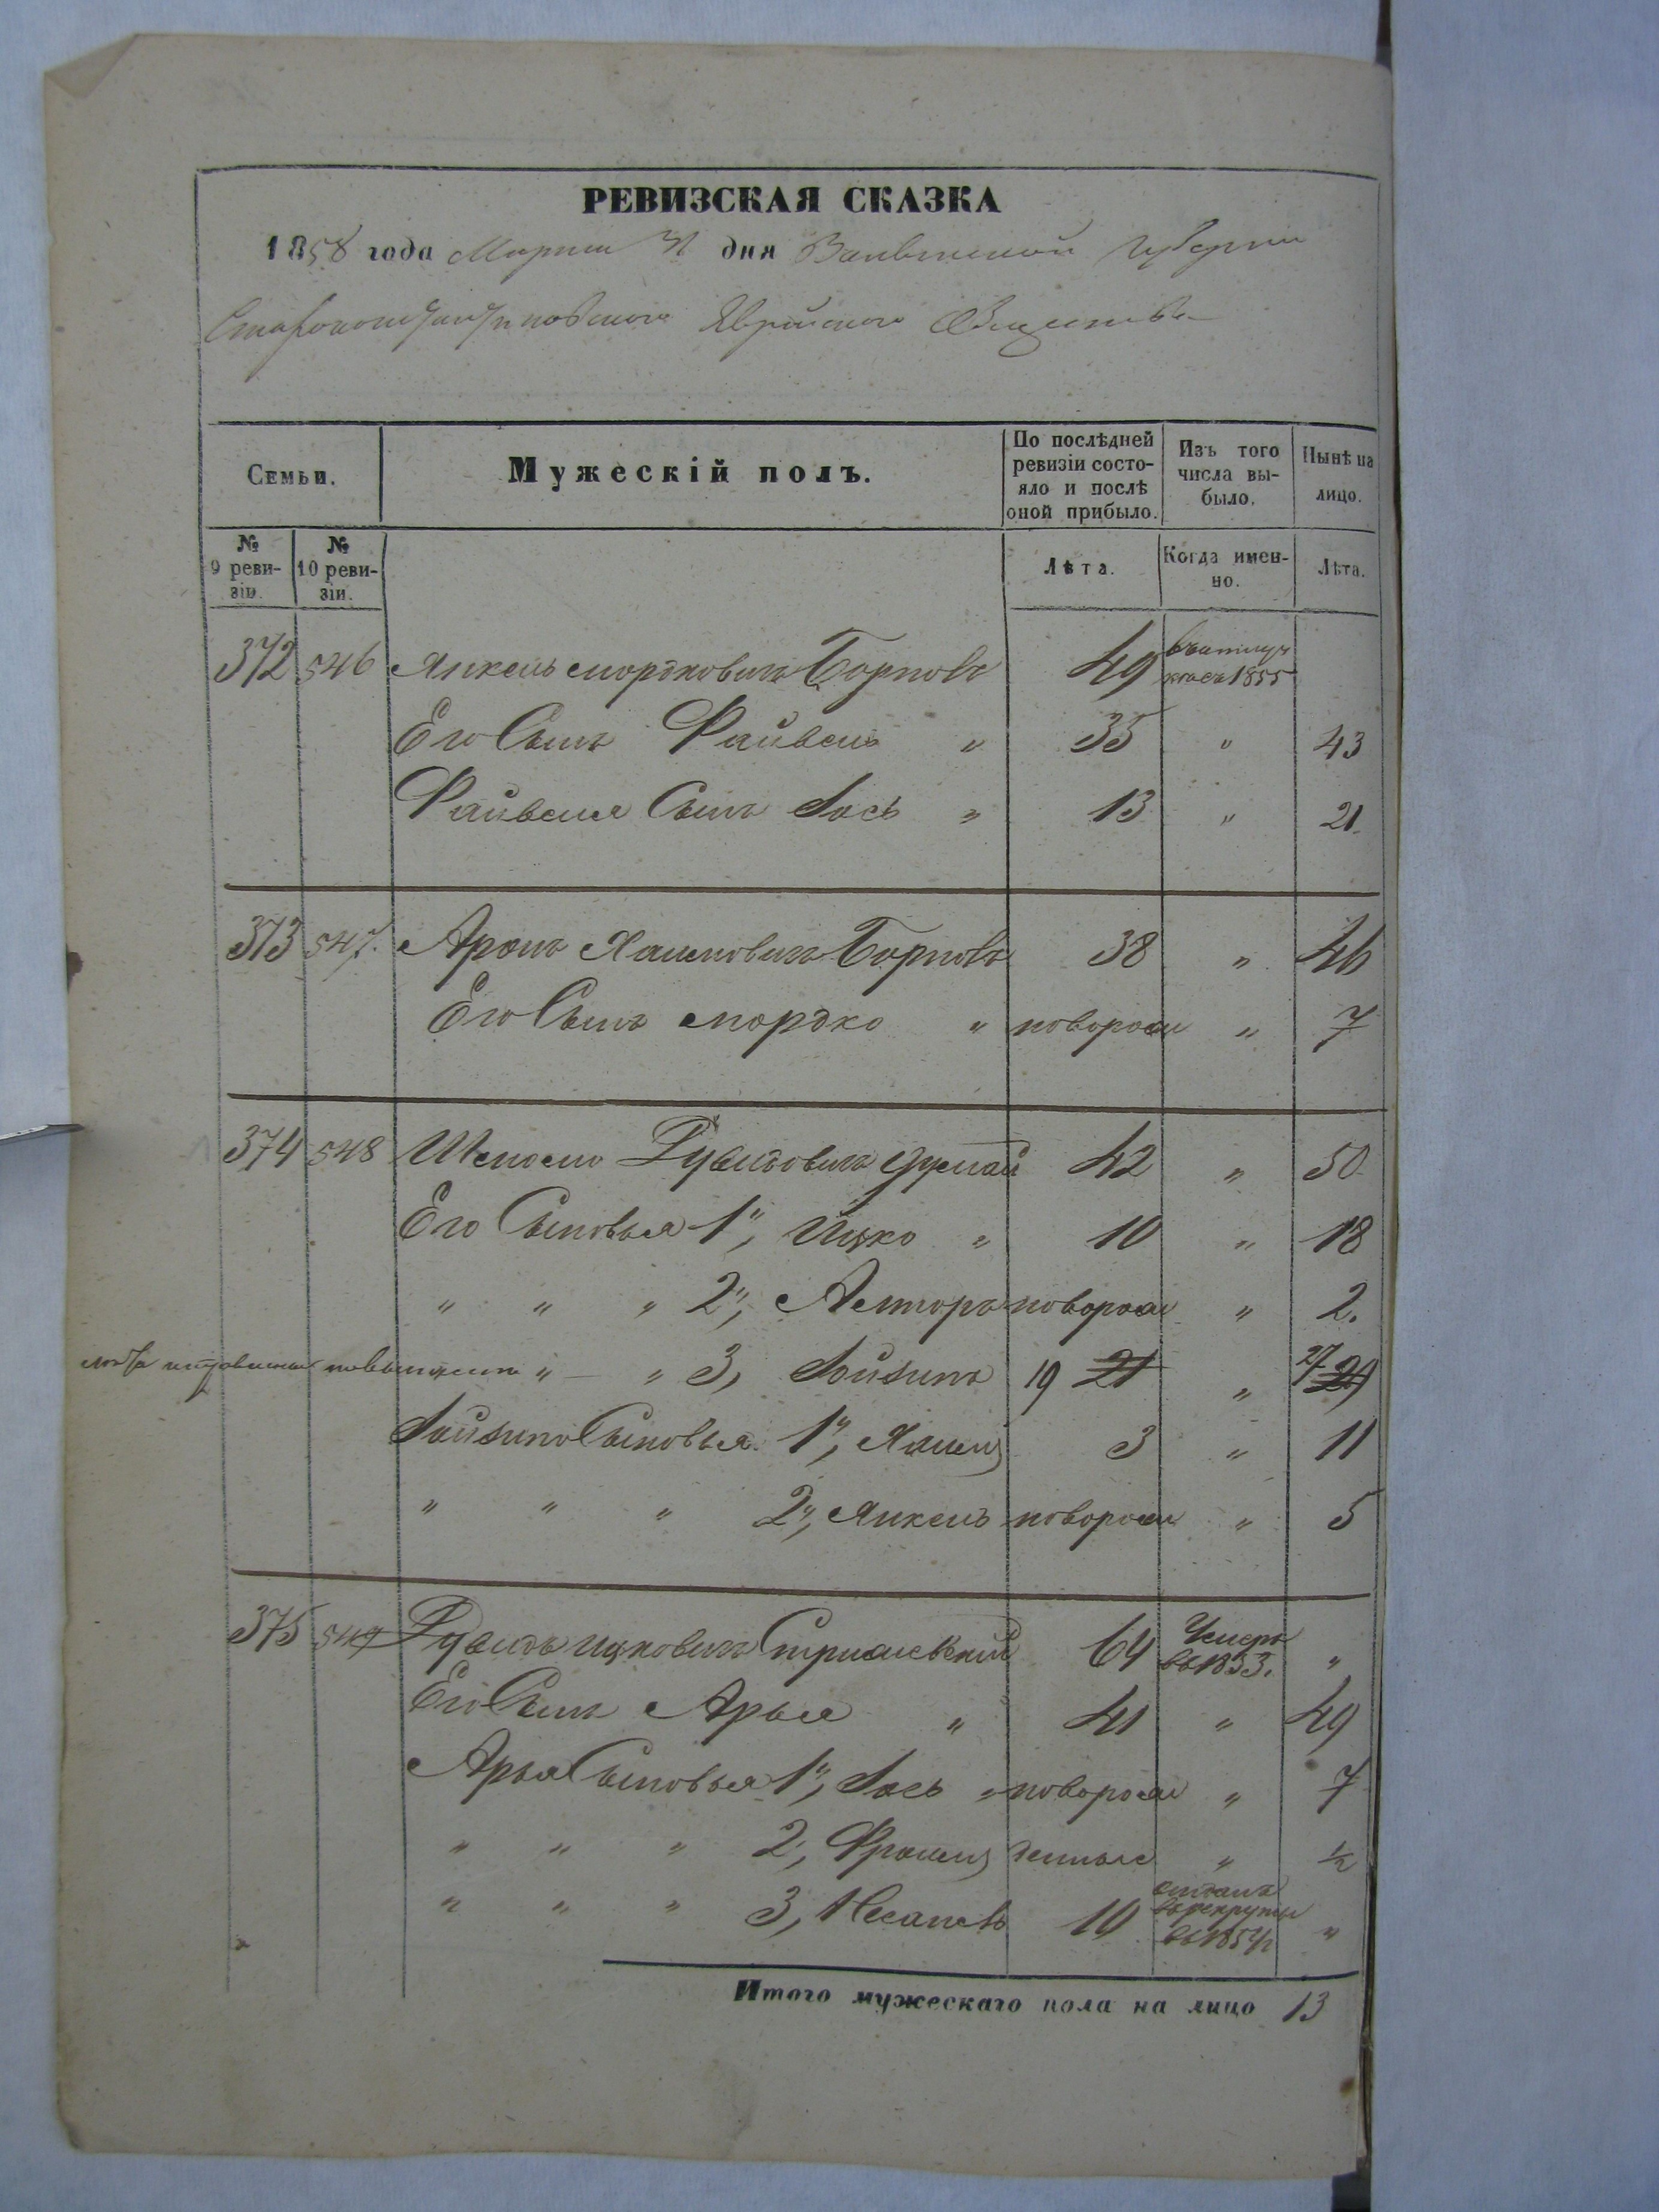 РЕВИЗСКАЯ СКАЗКА
1858 года Марта 31 дня Волынской Губернии
Староконстантиновского Еврейского Общества
Семьи.
Мужескій полъ.
По послѣдней ревизіи состо-яло и послѣ оной прибыло.
Изъ того числа вы-было.
Нынѣ на лицо.
№ 9 реви-зіи.
№ 10 реви-зіи.
Лѣта.
Когда имен-но.
Лѣта.
372 546 Янкель Мордковичъ 49 1855
Его Сынъ Файвель " 35 " 43
Файвеля Сынъ Іось " 13 " 21
373 547 Аронъ 38 " 46
Его Сынъ Мордко " новорож " 7
374 548 Шлiомо 42 " 50
Его Сыновья 1й, Ицко " 10 " 18
" " " 2й, Алтеръ новорож " 2.
" " 3, 19 21 " 27 29
Сыновья 1й, 3 " 11
" " " 2й, Янкель новорож " 5
375 549 Ицковичъ 64 Умеръ въ 1853. "
Его Сынъ Арья " 41 " 49
Арья Сыновья 1й, Іось " новорож " 7
" " " 2, Фроимъ денные " ½
" " " 3, 10 отданъ въ рекруты въ 1854г "
Итого мужескаго пола на лицо 13